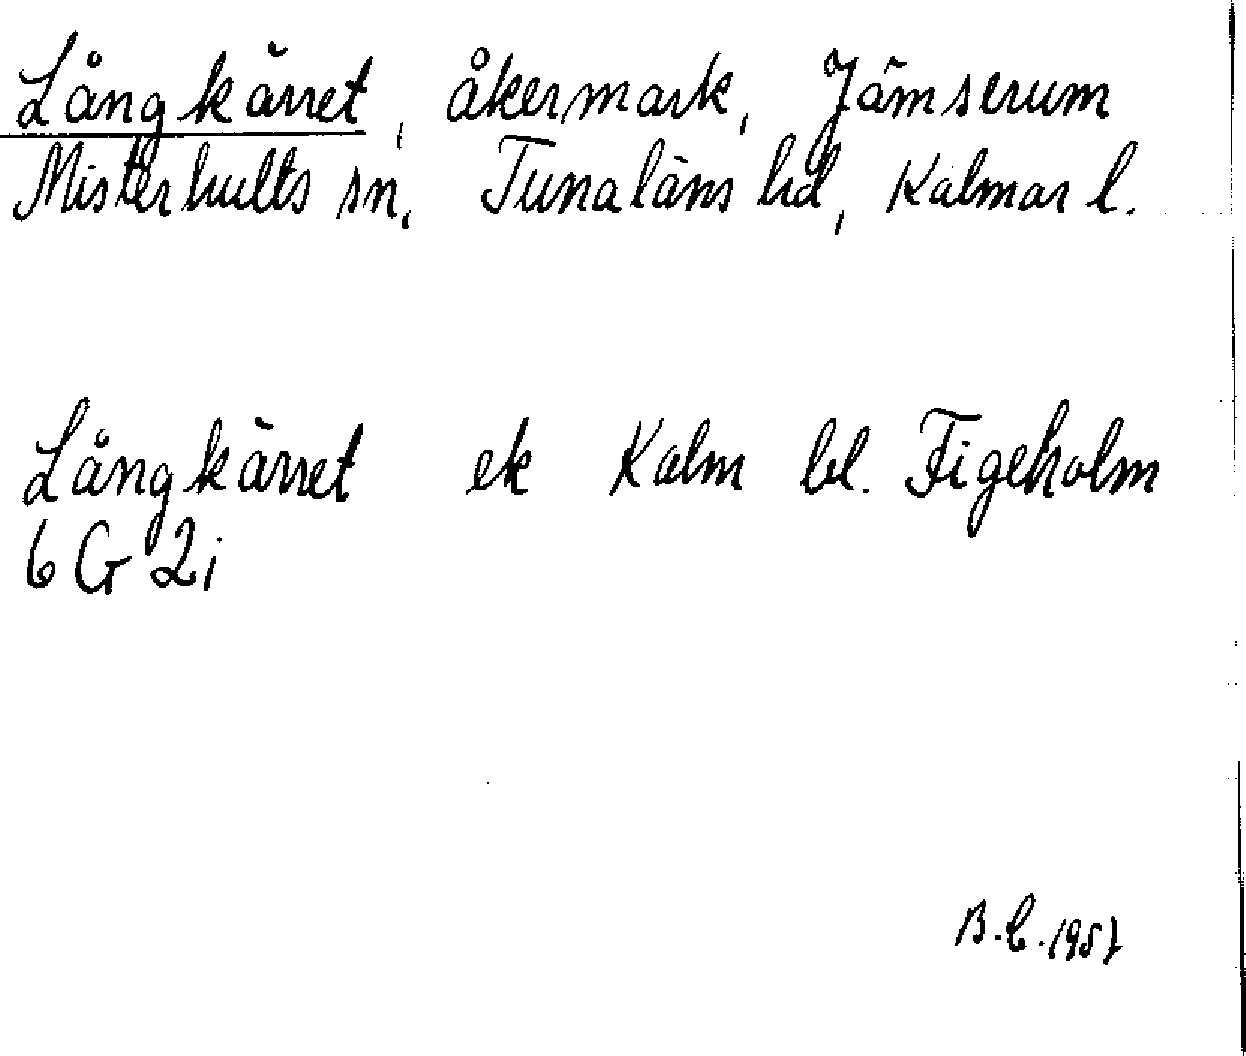 Långkärret, åkermark, Jämserum
Misterhults sn, Tunaläns hd, Kalmar l.
Långkärret ek Kalm bl. Figeholm
6 G 2i
B.C. 1957